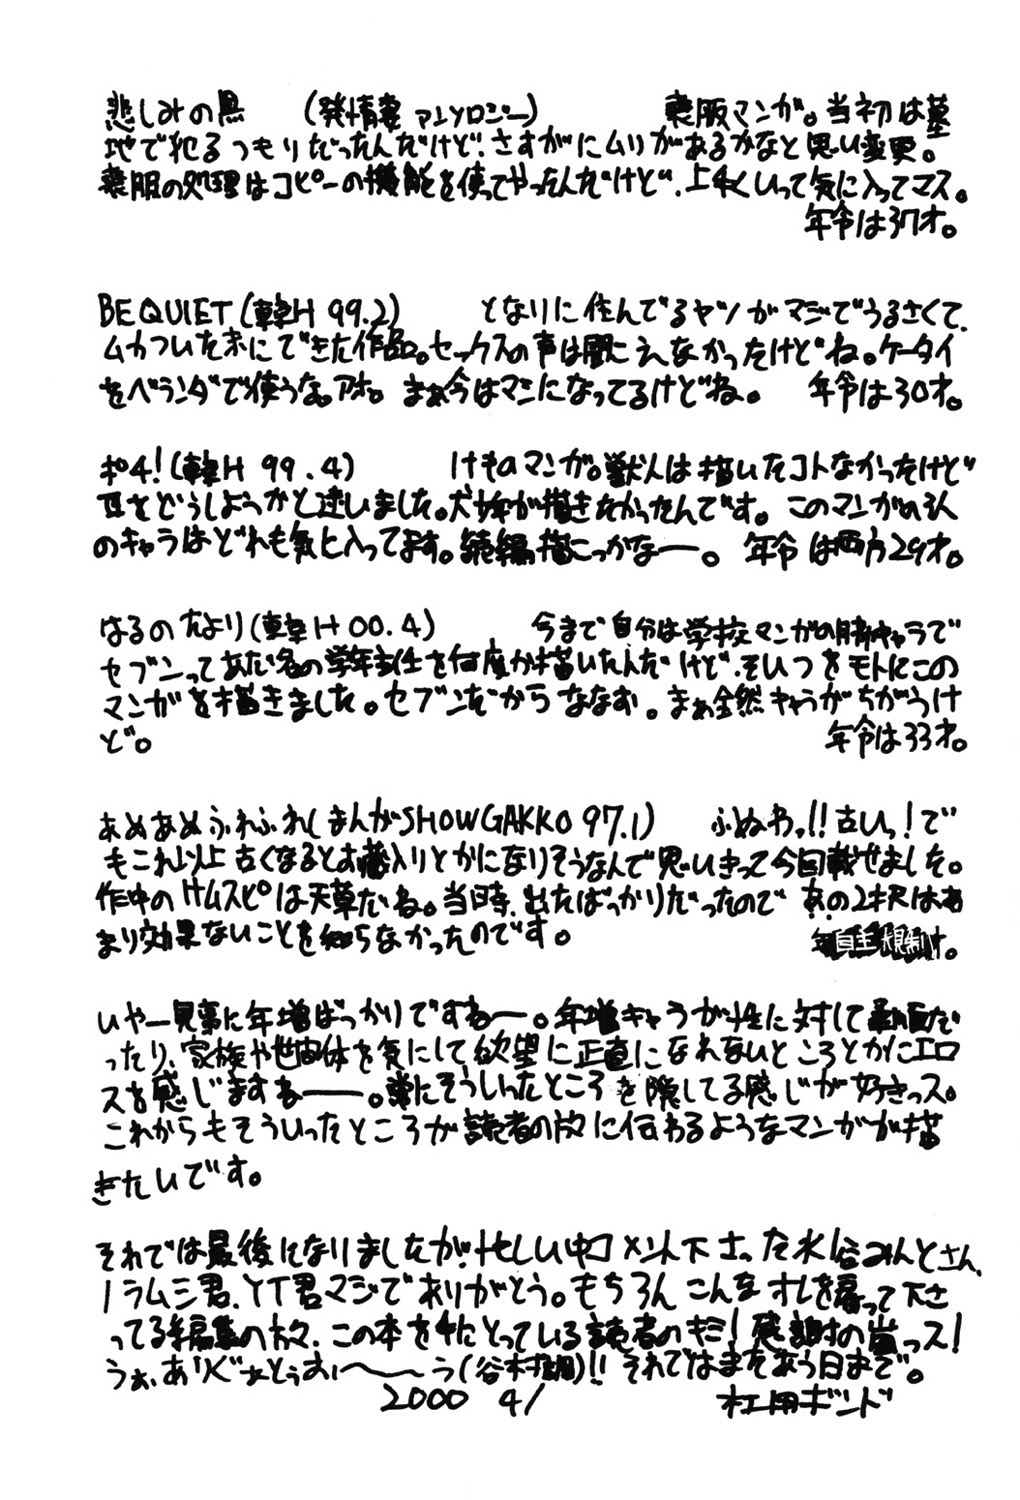 悲しみの黒 (発情妻アンソロジー) 喪服マンガ。当初は墓
地で犯るつもりだったんだけど、さすがにムリがあるかなと思い変更。
喪服の処理はコピーの機能を使ってやったんだけど、上手くいって気に入ってマス。
年令は37才。
BE QUIET (韓H 99.2) となりに住んでるヤツがマジでうるさくて、
ムカついた末にできた作品。セックスの声は聞こえなかったけどね。ケータイ
をベランダで使うな。アホ。まぁ今はマシになってるけどね。 年令は30才。
ポチ!(韓H 99.4) けものマンガ。獣人は描いたコトなかったけど
耳をどうしようかと迷いました。犬が描きたかったんです。このマンガの3人
のキャラはどれも気に入ってます。続編描こっかなー。 年令は両方29才。
はるのたより(韓H 00.4) 今まで自分は学校マンガの脇キャラで
セブンってあだ名の学年主任を何度か描いたんだけど、そいつをモトにこの
マンガを描きました。セブンだからななお。まぁ全然キャラがちがうけ
ど。 年令は33才。
あめあめふれふれ(まんがSHOWGAKKO 97.1) ふぬわっ!!古いっ!で
もこれ以上古くなるとお蔵入りとかになりそうなんで思いきって今回載せました。
作中のサムスピは天草だね。当時、出たばっかりだったのであの2択はあ
まり効果ないことを知らなかったのです。 自主規制
いやー見事に年増ばっかりですねー。年増キャラが性に対して素直だ
ったり、家族や世間体を気にして欲望に正直になれないところとかにエロ
スを感じますねー。常にそういったところを隠してる感じが好きっス。
これからもそういったところが読者の方に伝わるようなマンガが描
きたいです。
それでは最後になりましたが、忙しい中コメント下さった水谷みんとさん、
ノラムシ君、YT君マジでありがとう。もちろんこんなオレを雇って下さ
ってる編集の方々、この本を手にとっている読者のキミ!感謝の嵐っス!
うぉ、ありぐぁとぅおぉ〜う(谷村)!!それではまた会う日まで。
2000 4/ 杜用ボンド